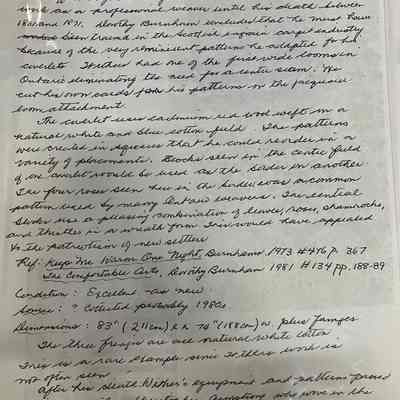 work as a professional weaver until his death between
1861 and 1871. Dorothy Burnham concluded that he must have
been trained in the Scottish ingrain carpet industry
because of the very reminiscent patterns he adapted for his
coverlets. Withers had one of the first wide looms in
Ontario eliminating the need for a center seam. He
cut his own cards for his patterns on the jacquard
loom attachment.
The coverlet uses cadmium red wool weft on a
natural white and blue cotton field. The patterns
were created in squares that he could reorder in a
variety of placements. Blocks seen in the center field
of one coverlet would be used as the border in another.
The four roses seen here in the border was a common
pattern used by many Ontario weavers. The central
blocks use a pleasing combination of leaves, roses, shamrocks,
and thistles in a wreath form. This would have appealed
to the patriotism of new settlers
Ref: Keep Me Warm One Night, Burnhams 1973 #476 p. 367
The Comfortable Arts, Dorothy Burnham 1981 #134 pp. 188-89
Condition: Excellent - as new.
Source: ? Collected probably 1980s.
Dimensions: 83" (211cm) L x 74" (188cm) w. plus fringes
The three fringes are all natural white cotton
This is a rare example since Withers work is
not often seen
After his death Wither's equipment and patterns passed
Armstrong who wove in the